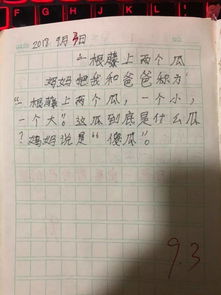 2017 9月3日
一根藤上两个瓜
妈妈把我和爸爸称为
“一根藤上两个瓜，一个小，
一个大”。这瓜到底是什么瓜
？妈妈说是“傻瓜”。
9.3